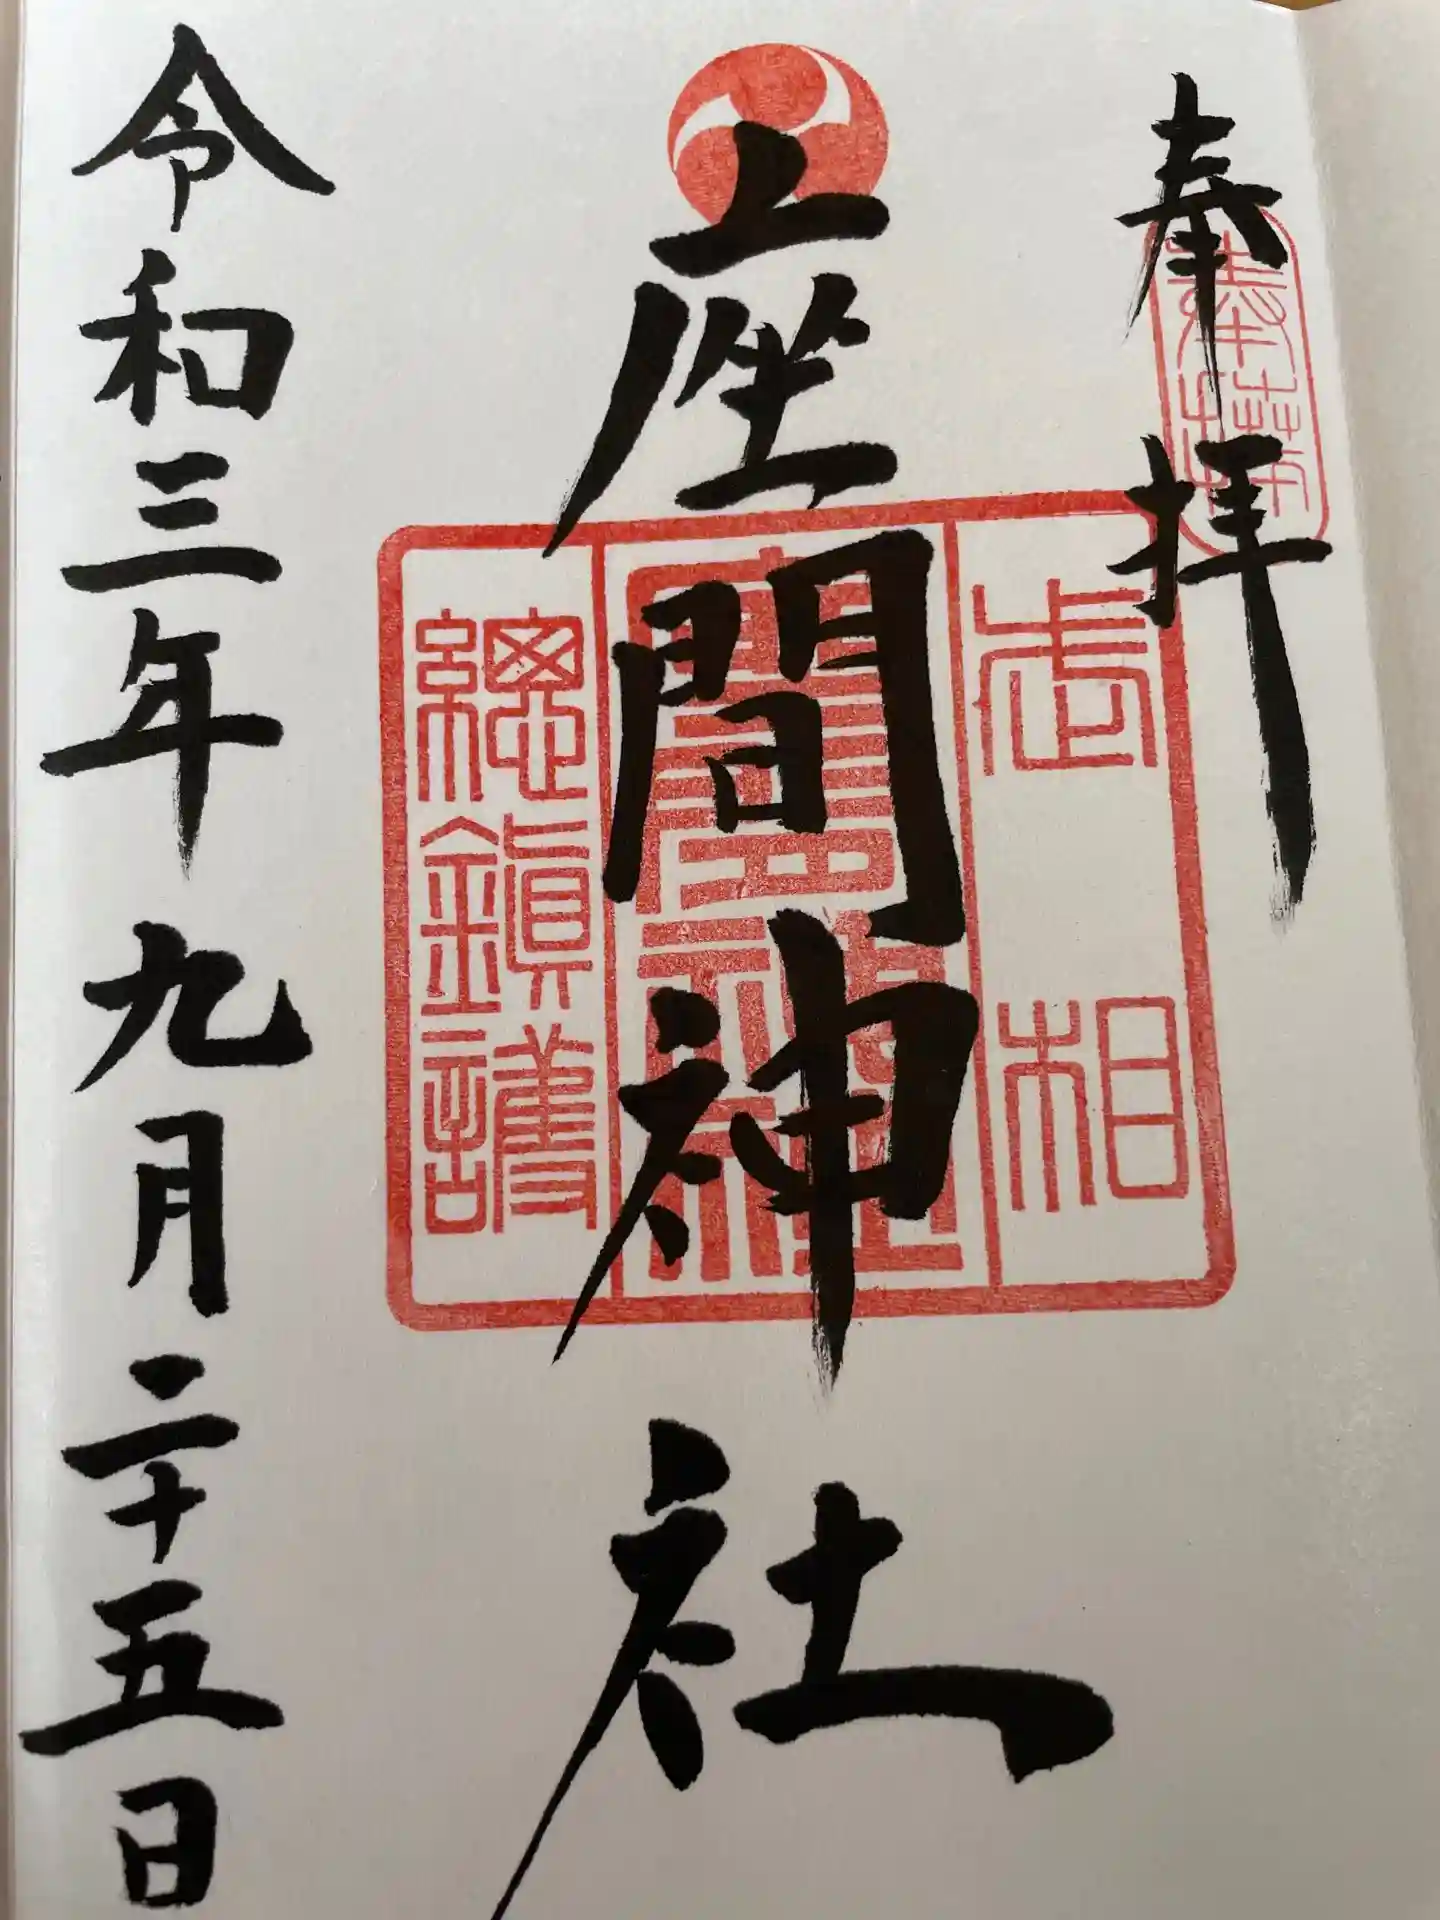 奉拝
奉拝
武相
座間神社
座間神社
總鎭護
令和三年九月二十五日